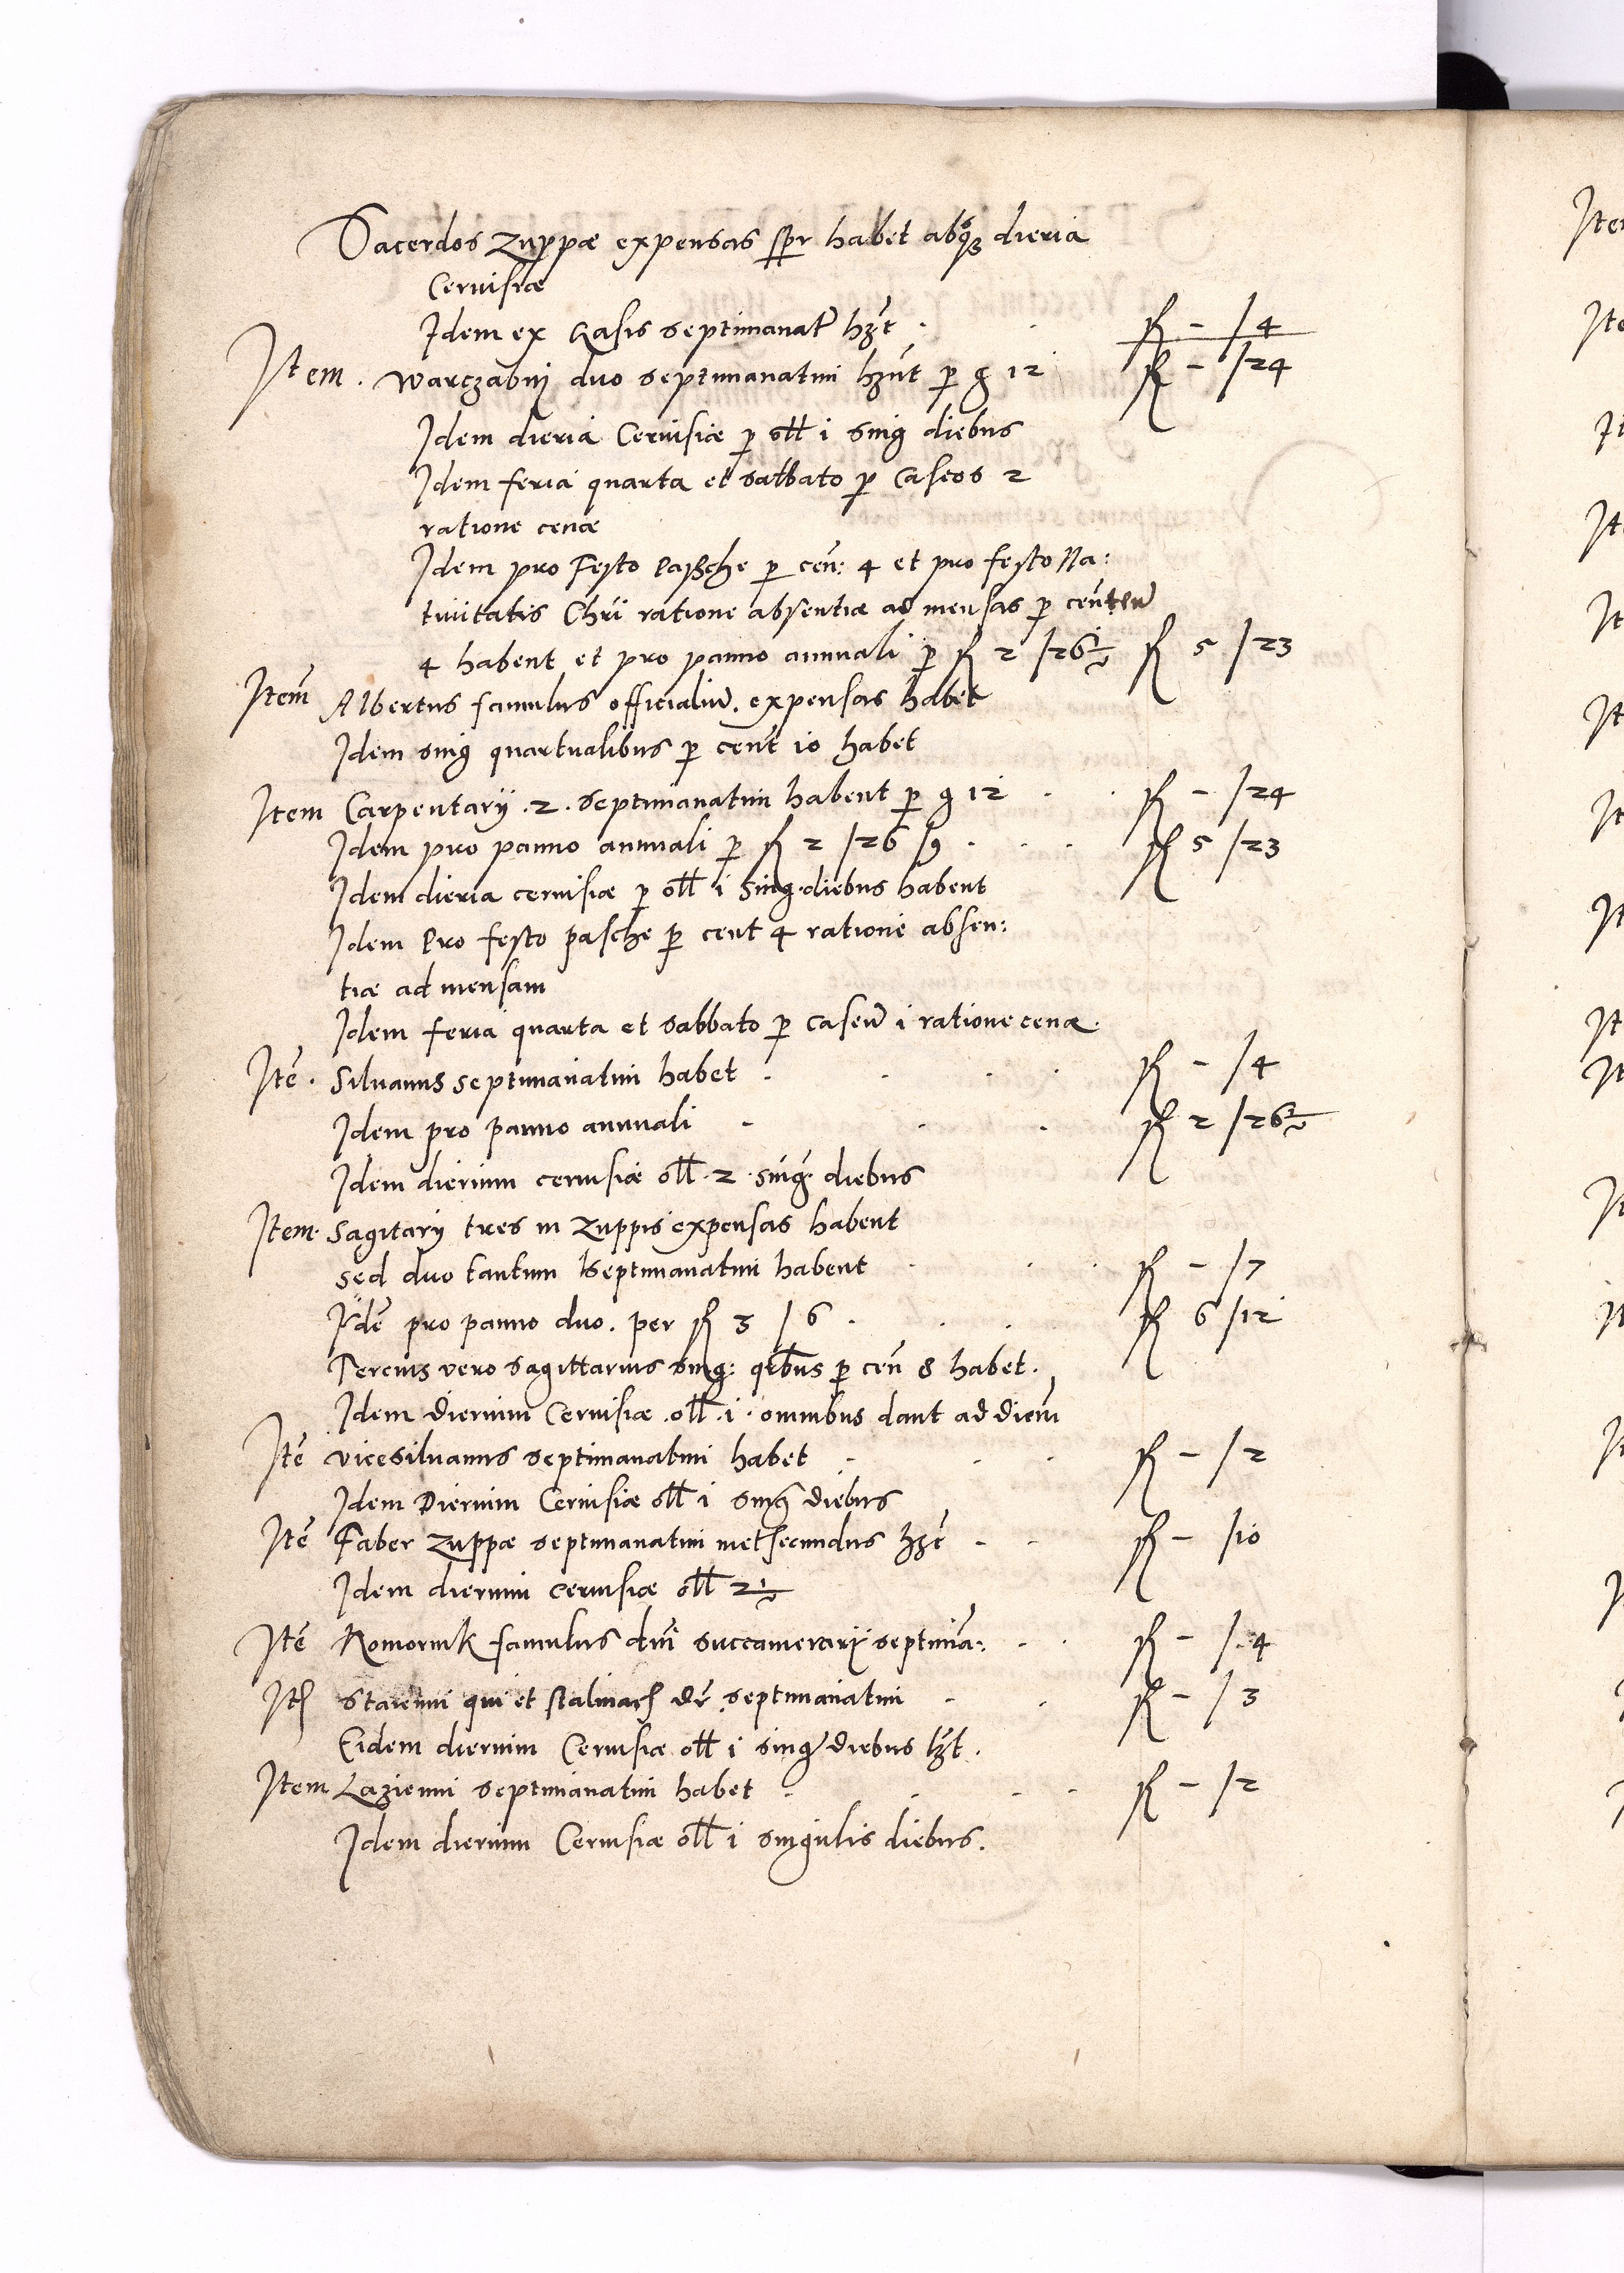 Sacerdos Zuppæ expensas spr habet absqȝ dieria
Ceruisiæ
Idem ex Casis septimanatī hȝt . . fl – /4
Item . Warczabni duo septimanatim hȝnt p g 12 fl – /24
Idem dieria Ceruisiæ p oll i sing diebus
Idem feria quarta et sabbato p Caseos 2
ratione cenæ
Idem pro Festo Pasche p cen: 4 et pro festo Na:
tiuitatis Chri ratione absentiæ ad mensas p centen
4 habent et pro panno annuali p fl 2 /26½ fl 5 /23
Item Albertus famulus officialiū . expensas habet
Idem sing quartualibus p cent 10 habet
Item Carpentarij . 2 . septimanatim habent p g 12 . . fl – /24
Idem pro panno annuali p fl 2 /26 /9 . . . fl 5 /23
Idem dieria ceruisiæ p oll i sing . diebus habent
Idem Pro festo pasche p cent 4 ratione absen:
tiæ ad mensam
Idem feria quarta et sabbato p caseū i ratione cenæ .
Itē . Siluanus septimanatim habet . . . . fl – /4
Idem pro panno annuali . . . fl 2 /26½
Idem diernim ceruisiæ oll . 2 . sing . diebus
Item . Sagitarij tres in Zuppis expensas habent
sed duo tantum septimanatim habent . . . fl – /7
Idē pro panno duo . per fl 3 /6 . . . fl 6 /12
Tercius vero sagittarius sing: qrbus p cen 8 habet .
Idem diernim Ceruisiæ . oll . i . omnibus dant ad diem
Itē vicesiluanus septimanatim habet . . . fl – /2
Idem Diernim Ceruisiæ oll i sing diebus
Itē Faber Zuppæ septimanatim metsecundus hȝt . . fl – /10
Idem diernim ceruisiæ oll 2½
Itē Komornik famulus dni succamerarij septimā: . . fl – /4
Itē Staienni qui et stalmach dr . septimanatim . . fl – /3
Eidem diernim Ceruisiæ oll i sing diebus hȝt .
Item Łazienni septimanatim habet . . . . fl – /2
Idem diernim Ceruisiæ oll i singulis diebus .